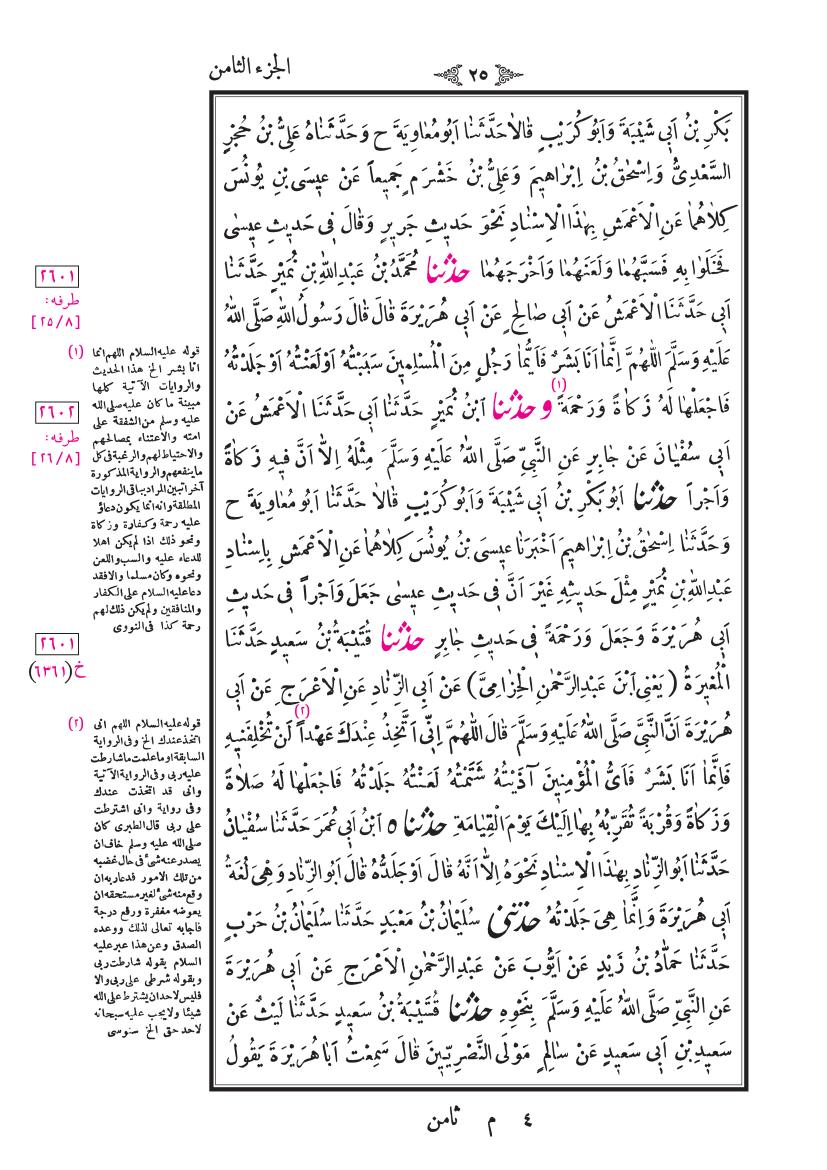 الجزء الثامن
٢٥
بَكْرِ بْنُ اَبِى شَيْبَةَ وَاَبُو كُرَيْبٍ قَالَا حَدَّثَنَا اَبُو مُعَاوِيَةَ ح وَحَدَّثَنَاهُ عَلِىُّ بْنُ حُجْرٍ
السَّعْدِىُّ وَاِسْحٰقُ بْنُ اِبْرَاهِيمَ وَعَلِىُّ بْنُ خَشْرَمٍ جَمِيعاً عَنْ عِيسَى بْنِ يُونُسَ
كِلَاهُمَا عَنِ الْاَعْمَشِ بِهٰذَا الْاِسْنَادِ نَحْوَ حَدِيثِ جَرِيرٍ وَقَالَ فِى حَدِيثِ عِيسٰى
فَخَلَوَا بِهِ فَسَبَّهُمَا وَلَعَنَهُمَا وَاَخْرَجَهُمَا حَدَّثَنَا مُحَمَّدُ بْنُ عَبْدِاللهِ بْنِ نُمَيْرٍ حَدَّثَنَا
اَبِى حَدَّثَنَا الْاَعْمَشُ عَنْ اَبِى صَالِحٍ عَنْ اَبِى هُرَيْرَةَ قَالَ قَالَ رَسُولُ اللهِ صَلَّى اللهُ
عَلَيْهِ وَسَلَّمَ اَللّٰهُمَّ اِنَّمَا اَنَا بَشَرٌ فَاَيُّمَا رَجُلٍ مِنَ الْمُسْلِمِينَ سَبَبْتُهُ اَوْ لَعَنْتُهُ اَوْ جَلَدْتُهُ
فَاجْعَلْهَا لَهُ زَكَاةً وَرَحْمَةً (١) وَحَدَّثَنَا ابْنُ نُمَيْرٍ حَدَّثَنَا اَبِى حَدَّثَنَا الْاَعْمَشُ عَنْ
اَبِى سُفْيَانَ عَنْ جَابِرٍ عَنِ النَّبِىِّ صَلَّى اللهُ عَلَيْهِ وَسَلَّمَ مِثْلَهُ اِلَّا اَنَّ فِيهِ زَكَاةً
وَاَجْراً حَدَّثَنَا اَبُو بَكْرِ بْنُ اَبِى شَيْبَةَ وَاَبُو كُرَيْبٍ قَالَا حَدَّثَنَا اَبُو مُعَاوِيَةَ ح
وَحَدَّثَنَا اِسْحٰقُ بْنُ اِبْرَاهِيمَ اَخْبَرَنَا عِيسَى بْنُ يُونُسَ كِلَاهُمَا عَنِ الْاَعْمَشِ بِاِسْنَادِ
عَبْدِاللهِ بْنِ نُمَيْرٍ مِثْلَ حَدِيثِهِ غَيْرَ اَنَّ فِى حَدِيثِ عِيسٰى جَعَلَ وَاَجْراً فِى حَدِيثِ
اَبِى هُرَيْرَةَ وَجَعَلَ وَرَحْمَةً فِى حَدِيثِ جَابِرٍ حَدَّثَنَا قُتَيْبَةُ بْنُ سَعِيدٍ حَدَّثَنَا
الْمُغِيرَةُ ( يَعْنِى ابْنَ عَبْدِالرَّحْمٰنِ الْحِزَامِىَّ) عَنْ اَبِى الزِّنَادِ عَنِ الْاَعْرَجِ عَنْ اَبِى
هُرَيْرَةَ اَنَّ النَّبِىَّ صَلَّى اللهُ عَلَيْهِ وَسَلَّمَ قَالَ اَللّٰهُمَّ اِنِّى اَتَّخِذُ عِنْدَكَ عَهْداً (٢) لَنْ تُخْلِفَنِيهِ
فَاِنَّمَا اَنَا بَشَرٌ فَاَىُّ الْمُؤْمِنِينَ آذَيْتُهُ شَتَمْتُهُ لَعَنْتُهُ جَلَدْتُهُ فَاجْعَلْهَا لَهُ صَلَاةً
وَزَكَاةً وَقُرْبَةً تُقَرِّبُهُ بِهَا اِلَيْكَ يَوْمَ الْقِيَامَةِ حَدَّثَنَا ٥ ابْنُ اَبِى عُمَرَ حَدَّثَنَا سُفْيَانُ
حَدَّثَنَا اَبُو الزِّنَادِ بِهٰذَا الْاِسْنَادِ نَحْوَهُ اِلَّا اَنَّهُ قَالَ اَوْ جَلَدُّهُ قَالَ اَبُو الزِّنَادِ وَهِىَ لُغَةُ
اَبِى هُرَيْرَةَ وَاِنَّمَا هِىَ جَلَدْتُهُ حَدَّثَنِى سُلَيْمَانُ بْنُ مَعْبَدٍ حَدَّثَنَا سُلَيْمَانُ بْنُ حَرْبٍ
حَدَّثَنَا حَمَّادُ بْنُ زَيْدٍ عَنْ اَيُّوبَ عَنْ عَبْدِالرَّحْمٰنِ الْاَعْرَجِ عَنْ اَبِى هُرَيْرَةَ
عَنِ النَّبِىِّ صَلَّى اللهُ عَلَيْهِ وَسَلَّمَ بِنَحْوِهِ حَدَّثَنَا قُتَيْبَةُ بْنُ سَعِيدٍ حَدَّثَنَا لَيْثٌ عَنْ
سَعِيدِ بْنِ اَبِى سَعِيدٍ عَنْ سَالِمٍ مَوْلَى النَّصْرِيِّينَ قَالَ سَمِعْتُ اَبَا هُرَيْرَةَ يَقُولُ
(١) قوله عليه السلام اللهم انما
انا بشر الخ هذا الحديث
والروايات الآتية كلها
مبينة ما كان عليه صلى الله
عليه وسلم من الشفقة على
امته والاعتناء بمصالحهم
والاحتياط لهم والرغبة فى كل
ما ينفعهم والرواية المذكورة
آخرا تبين المراد بباقى الروايات
المطلقة وانه انما يكون دعاؤ
عليه رحمة وكفارة وزكاة
ونحو ذلك اذا لم يكن اهلا
للدعاء عليه والسب واللعن
ونحوه وكان مسلما والافقد
دعا عليه السلام على الكفار
والمنافقين ولم يكن ذلك لهم
رحمة كذا فى النووى
(٢) قوله عليه السلام اللهم انى
اتخذ عندك الخ وفى الرواية
السابقة او ما علمت ما شارطت
عليه ربى وفى الرواية الآتية
وانى قد اتخذت عندك
وفى رواية وانى اشترطت
على ربى قال الطبرى كان
صلى الله عليه وسلم خاف ان
يصدر عنه شئ فى حال غضبه
من تلك الامور فدعا ربه ان
وقع منه شئ لغير مستحقه ان
يعوضه مغفرة ورفع درجة
فاجابه تعالى لذلك ووعده
الصدق وعن هذا عبر عليه
السلام بقوله شارطت ربى
وبقوله شرطى على ربى والا
فليس لاحد ان يشترط على الله
شيئا ولا يجب عليه سبحانه
لاحد حق الخ سنوسى
٢٦٠١
طرفه:
[٢٥/٨]
٢٦٠٢
طرفه:
[٢٦/٨]
٢٦٠١
خ(٦٣٦١)
٤ م ثامن